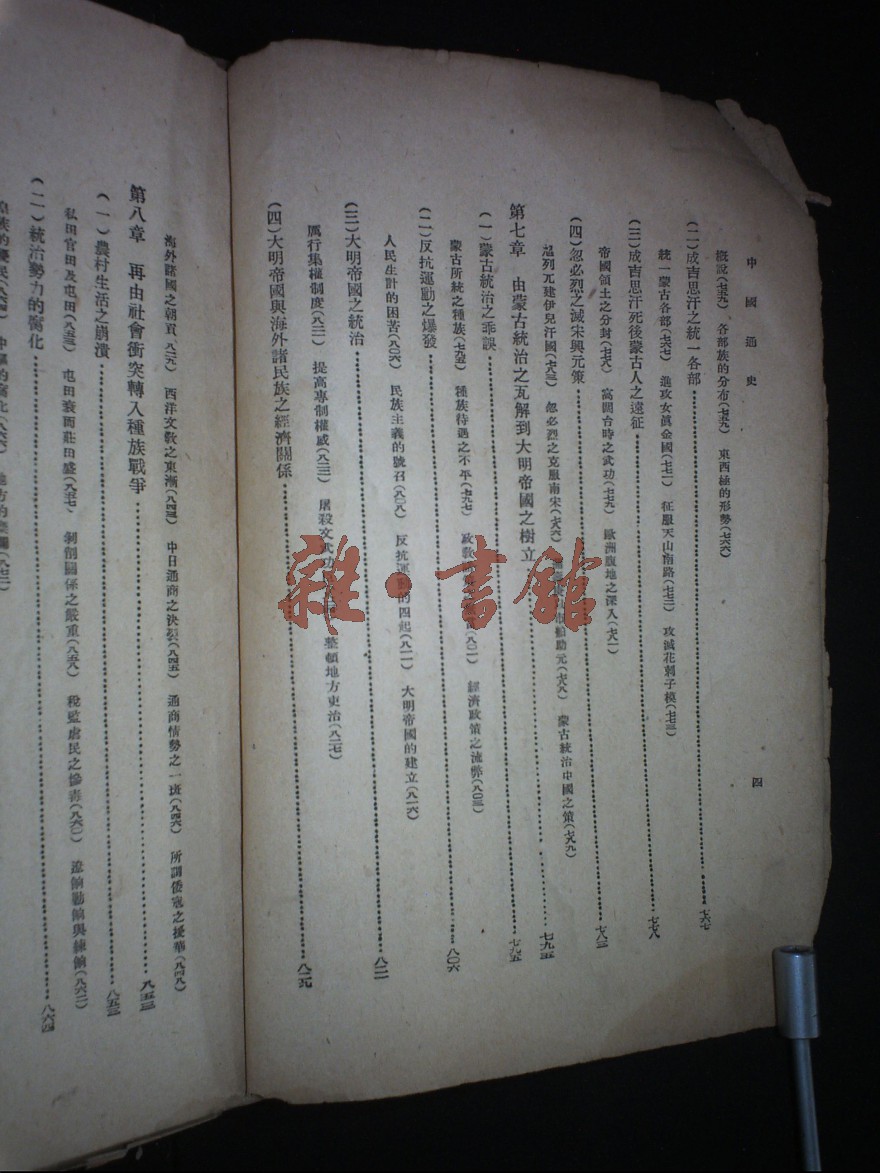 中國通史
四
概說(七五九) 各部族的分布(七五九) 東西極的形勢(七六六)
(二)成吉思汗之統一各部……七六七
統一蒙古各部(七六七) 進攻女眞金國(七七一) 征服天山南路(七七三) 攻滅花剌子模(七七三)
(三)成吉思汗死後蒙古人之遠征……七七八
帝國領土之分封(七七六) 窩闊台時之武功(七七九) 歐洲腹地之深入(七八一)
(四)忽必烈之滅宋興元策……七八三
旭列兀建伊兒汗國(七八三) 忽必烈之克服南宋(七八六) 助元(七八八) 蒙古統治中國之策(七八九)
第七章 由蒙古統治之瓦解到大明帝國之樹立……七九五
(一)蒙古統治之乖誤……七九五
蒙古所統之種族(七九五) 種族待遇之不平(七九七) 政教 (八〇一) 經濟政策之流弊(八〇三)
(二)反抗運動之爆發……八〇六
人民生計的困苦(八〇六) 民族主義的號召(八〇八) 反抗運動的四起(八一一) 大明帝國的建立(八一六)
(三)大明帝國之統治……八二一
厲行集權制度(八二一) 提高專制權威(八二三) 屠殺文武功 整頓地方吏治(八二七)
(四)大明帝國與海外諸民族之經濟關係……八二九
海外諸國之朝貢(八二九) 西洋文敎之東漸(八四四) 中日通商之決裂(八四五) 通商情勢之一斑(八四六) 所謂倭寇之擾華(八四八)
第八章 再由社會衝突轉入種族戰爭……八五三
(一)農村生活之崩潰……八五三
私田官田及屯田(八五三) 屯田衰而莊田盛(八五七) 剝削關係之嚴重(八五八) 稅監虐民之慘毒(八六一) 遼餉勦餉與練餉(八六二)
(二)統治勢力的腐化……八六四
雜·書館